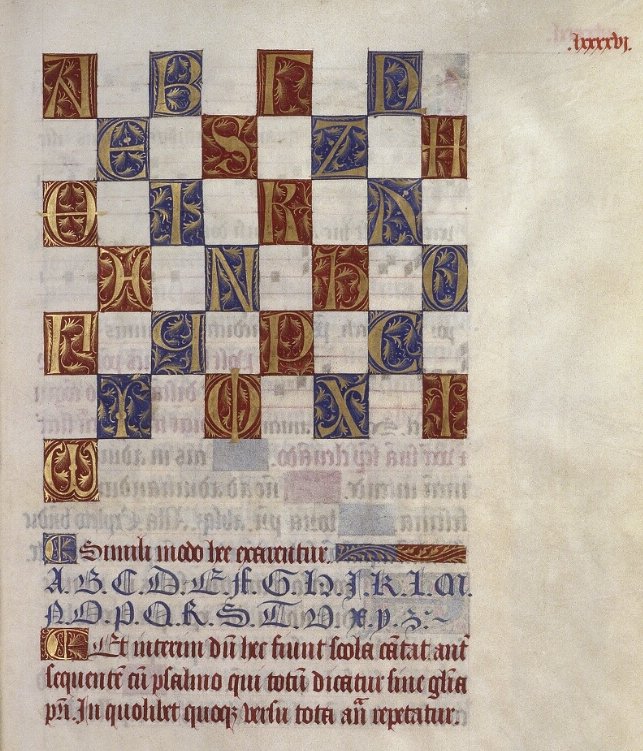 .lxxxxvj.
A B Γ D
E S Z H
Θ I K Λ
N O
Γ P C
Y Φ X I
ω
Simili modo hec exarentur.
A.B.C.D.E.F.G.H.J.K.L.M.
N.O.P.Q.R.S.T.V.x.y.z:~
Et interim dū hec fiunt scola cātat ant̄
sequentē cū psalmo qui totū dicatur sine gl̄ia
pr̄i. In quolibet quoqꝫ versu tota an̄ repetatur.